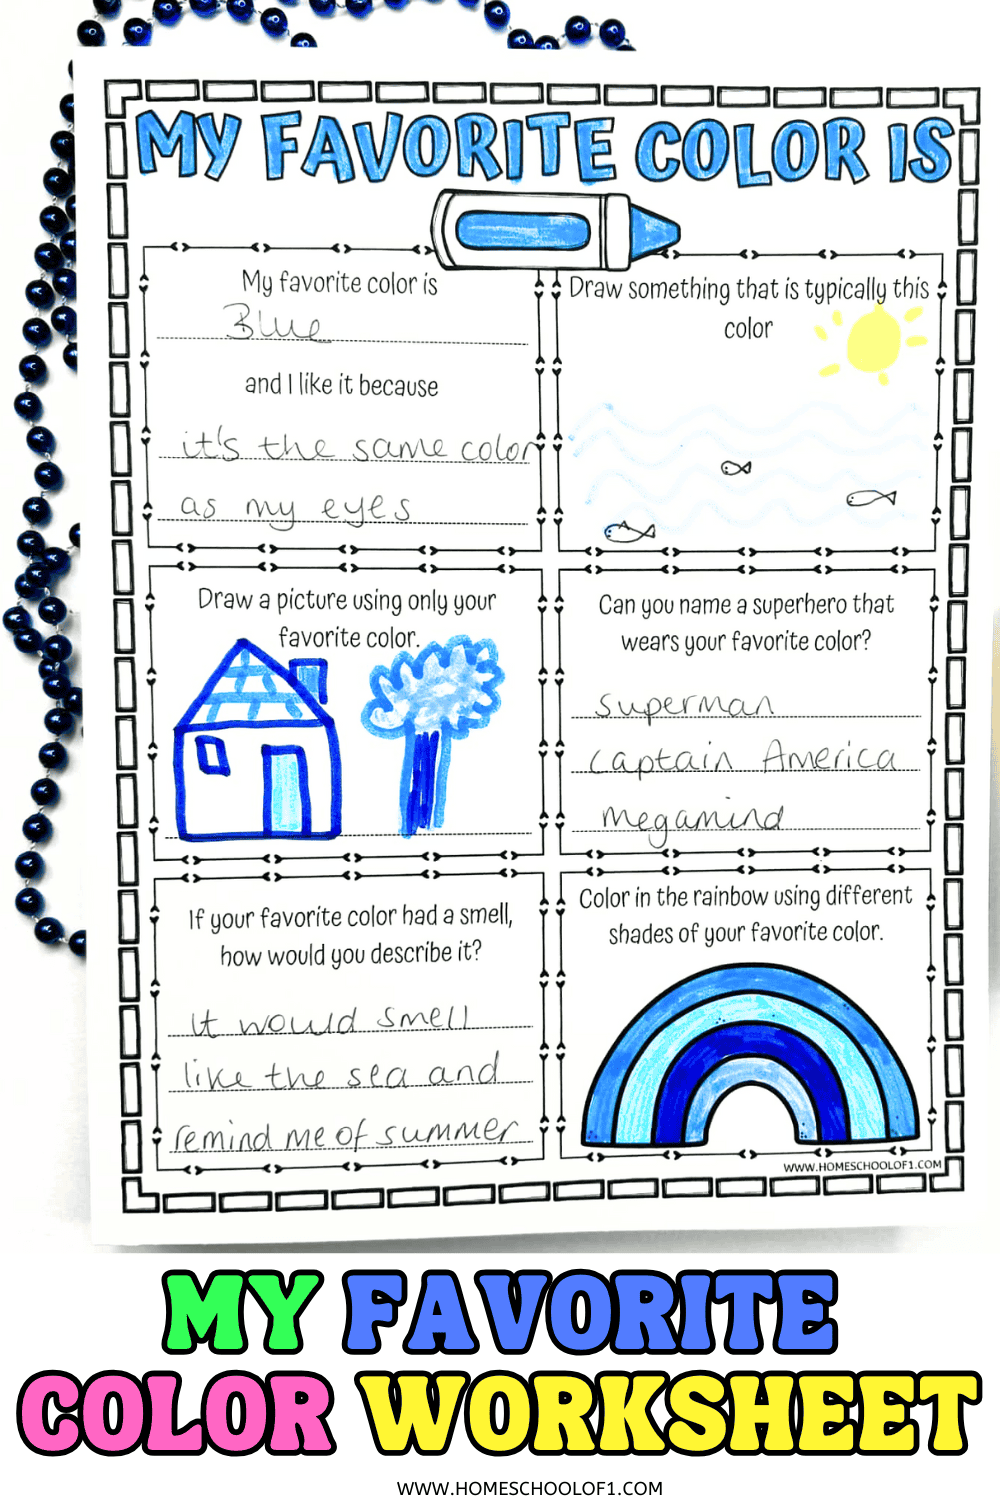 MY FAVORITE COLOR IS
My favorite color is
Blue
and I like it because
it's the same color
as my eyes
Draw something that is typically this
color
Draw a picture using only your
favorite color.
Can you name a superhero that
wears your favorite color?
superman
captain America
megamind
If your favorite color had a smell,
how would you describe it?
it would smell
like the sea and
remind me of summer
Color in the rainbow using different
shades of your favorite color.
WWW.HOMESCHOOLOF1.COM
MY FAVORITE
COLOR WORKSHEET
WWW.HOMESCHOOLOF1.COM